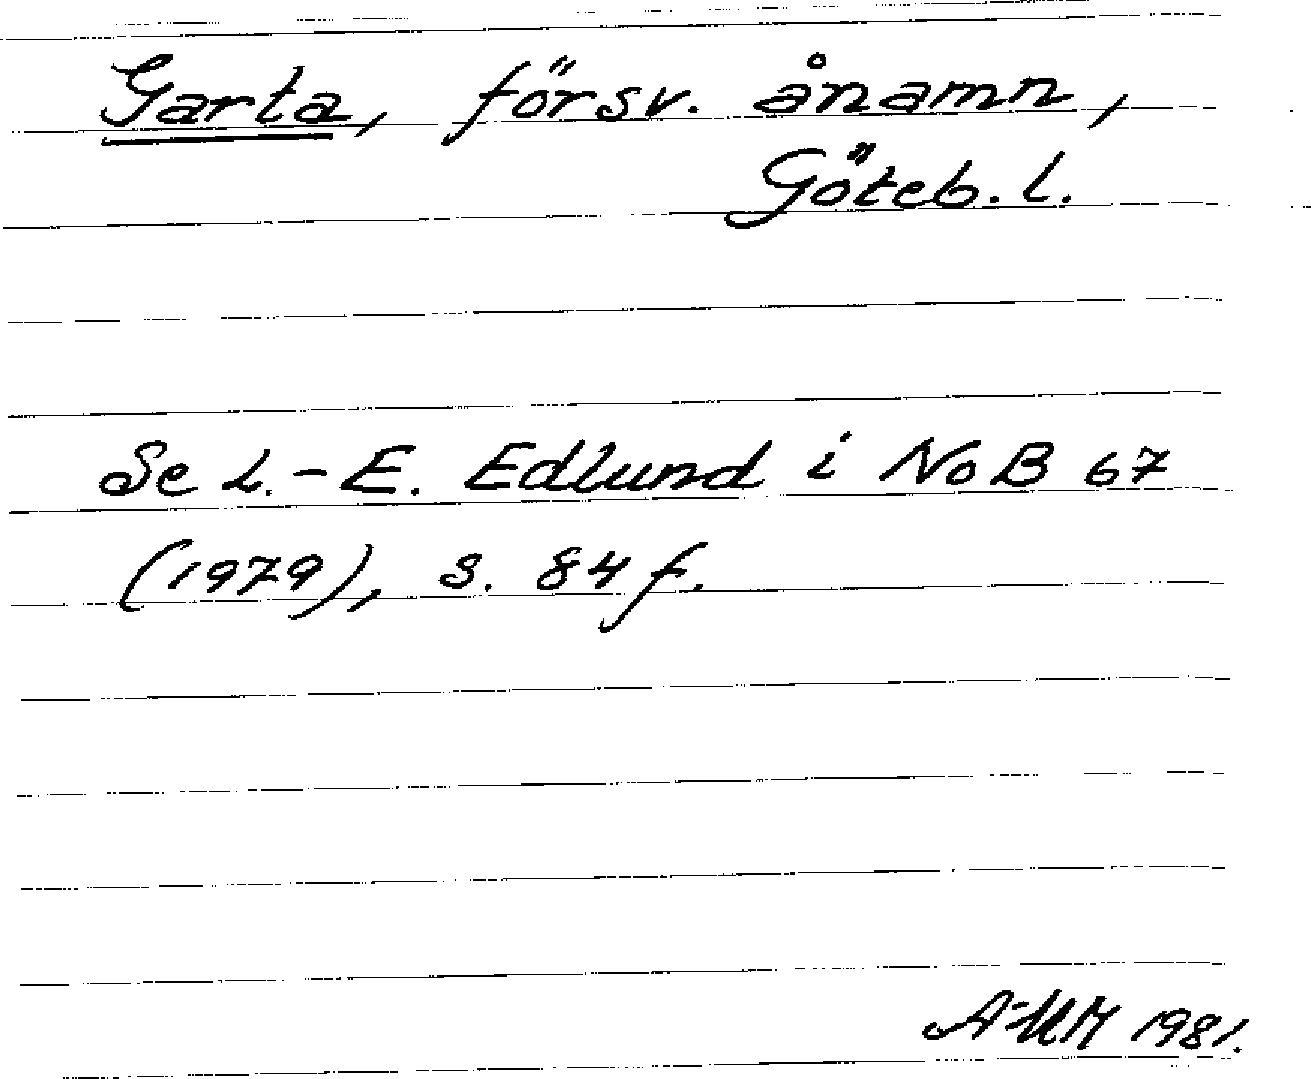 Garta, försv. ånamn,
Göteb. l.
Se L.-E. Edlund i NoB 67
(1979), s. 84 f.
1981.